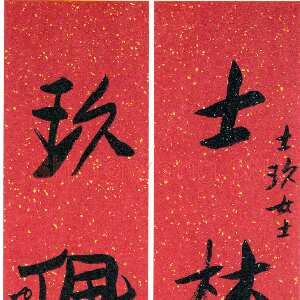 士玖女士
士林
玖佩